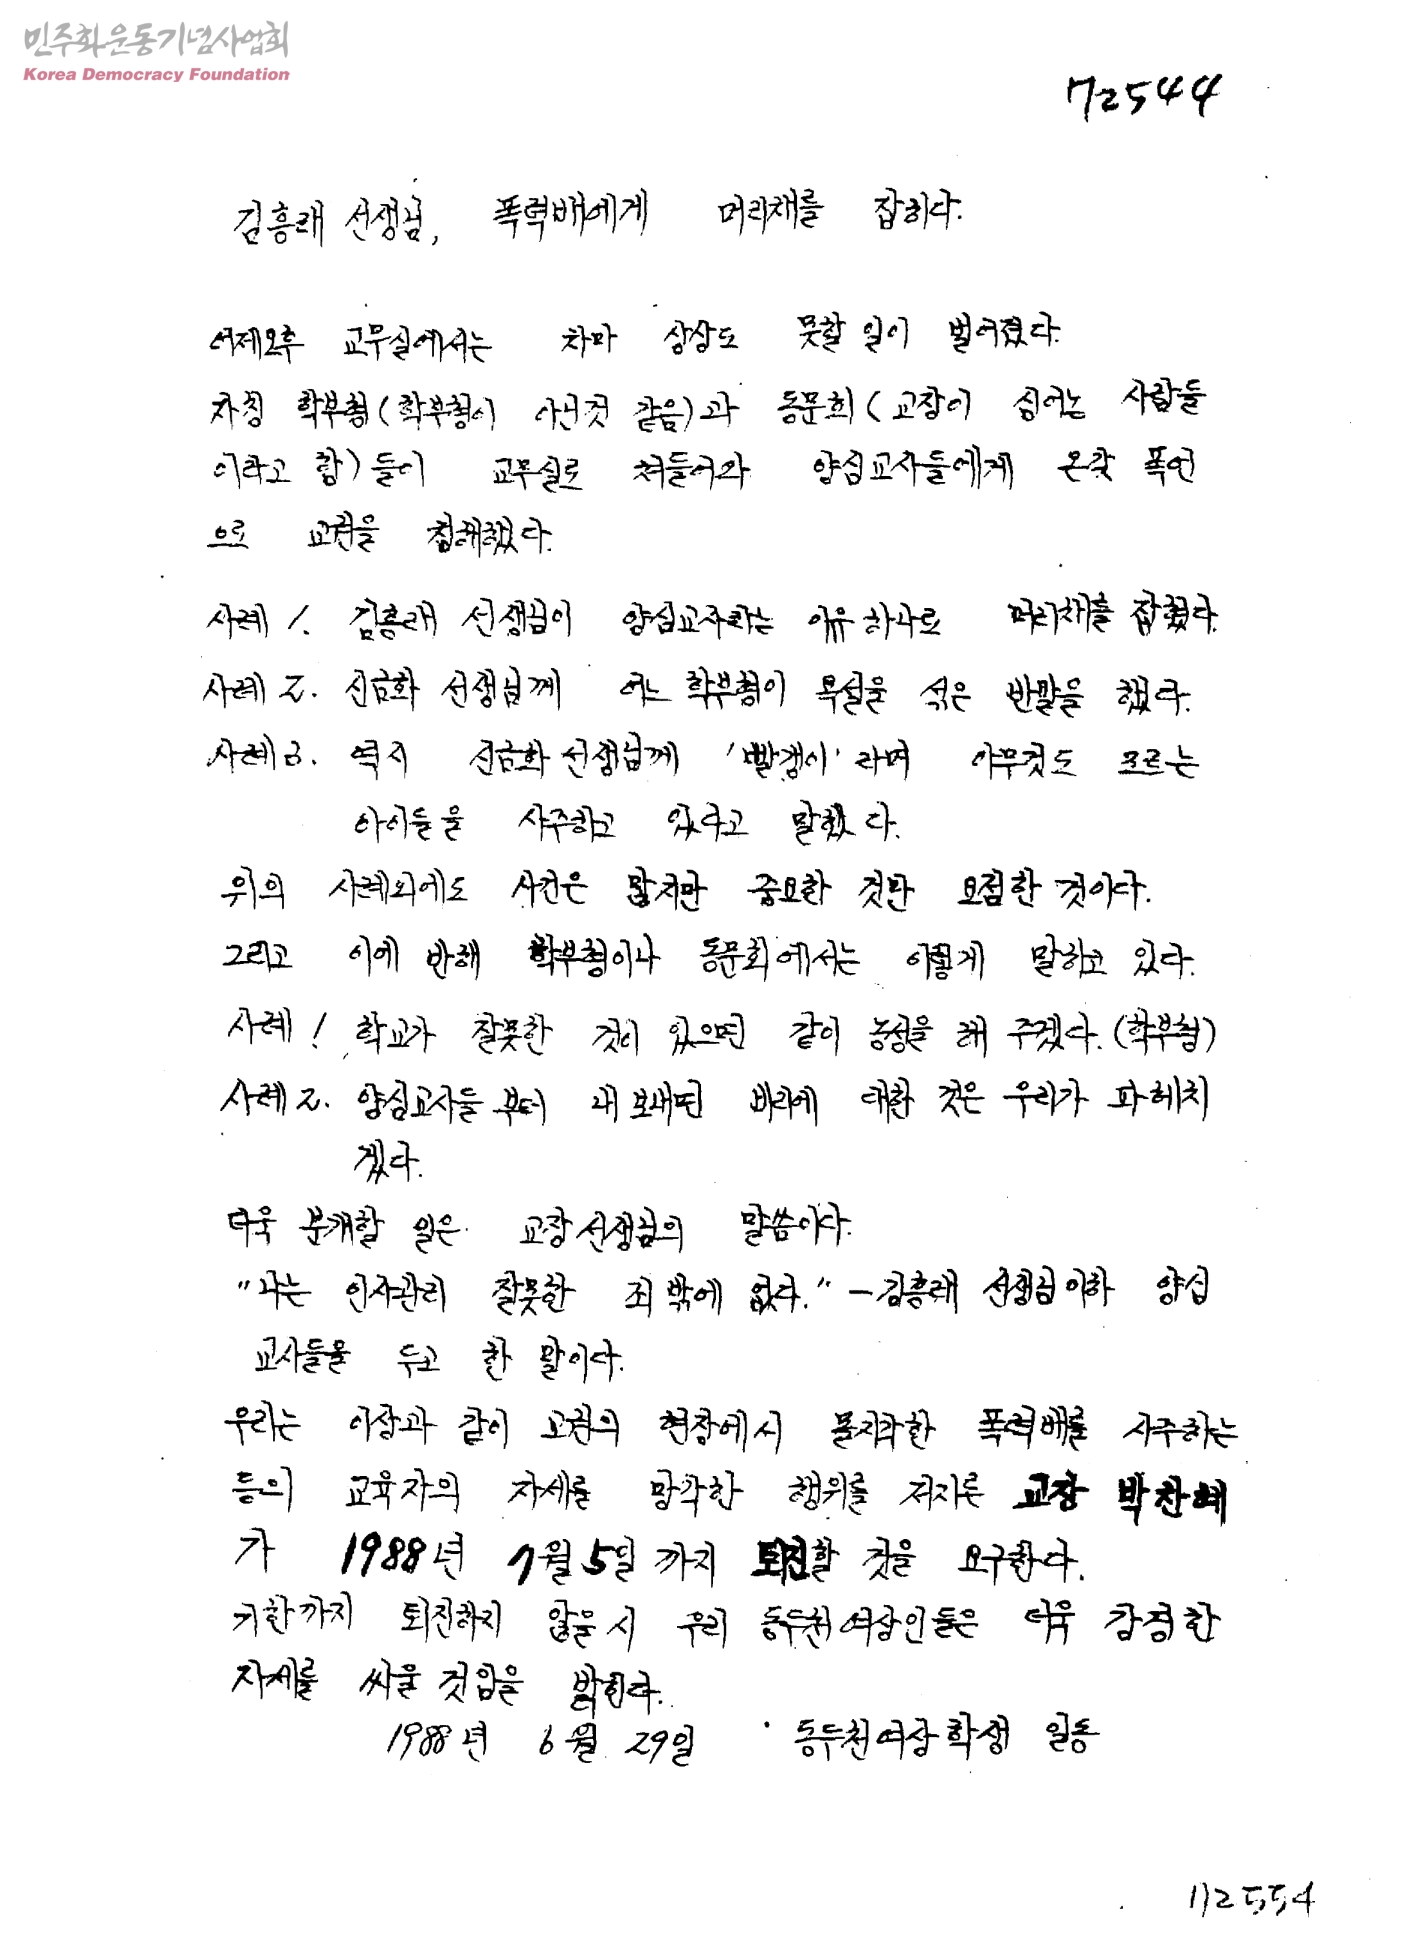 민주화운동기념사업회
Korea Democracy Foundation
72544
김흥래 선생님, 폭력배에게 머리채를 잡히다.
어제오후 교무실에서는 차마 상상도 못할 일이 벌어졌다.
자칭 학부형(학부형이 아닌것 같음)과 동문회(교장이 심어논 사람들
이라고 함)들이 교무실로 쳐들어와 양심교사들에게 온갖 폭언
으로 교권을 침해했다.
사례 1. 김흥래 선생님이 양심교사라는 이유 하나로 머리채를 잡혔다.
사례 2. 신금화 선생님께 어느 학부형이 욕설을 섞은 반말을 했다.
사례 3. 역시 신금화 선생님께 '빨갱이'라며 아무것도 모르는
아이들을 사주하고 있다고 말했다.
위의 사례외에도 사건은 많지만 중요한 것만 요점한 것이다.
그리고 이에 반해 학부형이나 동문회에서는 이렇게 말하고 있다.
사례 1. 학교가 잘못한 것이 있으면 같이 농성을 해 주겠다.(학부형)
사례 2. 양심교사들 부터 내 보내면 비리에 대한 것은 우리가 파헤치
겠다.
더욱 분개할 일은 교장선생님의 말씀이다.
"나는 인사관리 잘못한 죄 밖에 없다." - 김흥래 선생님이하 양심
교사들을 두고 한 말이다.
우리는 이상과 같이 교권의 현장에서 몰지각한 폭력배를 사주하는
등의 교육자의 자세를 망각한 행위를 저지른 교장 박찬혜
가 1988년 7월 5일 까지 퇴진할 것을 요구한다.
기한까지 퇴진하지 않을시 우리 동두천여상인들은 더욱 강경한
자세를 싸울 것임을 밝힌다.
1988년 6월 29일 동두천여상학생 일동
112554